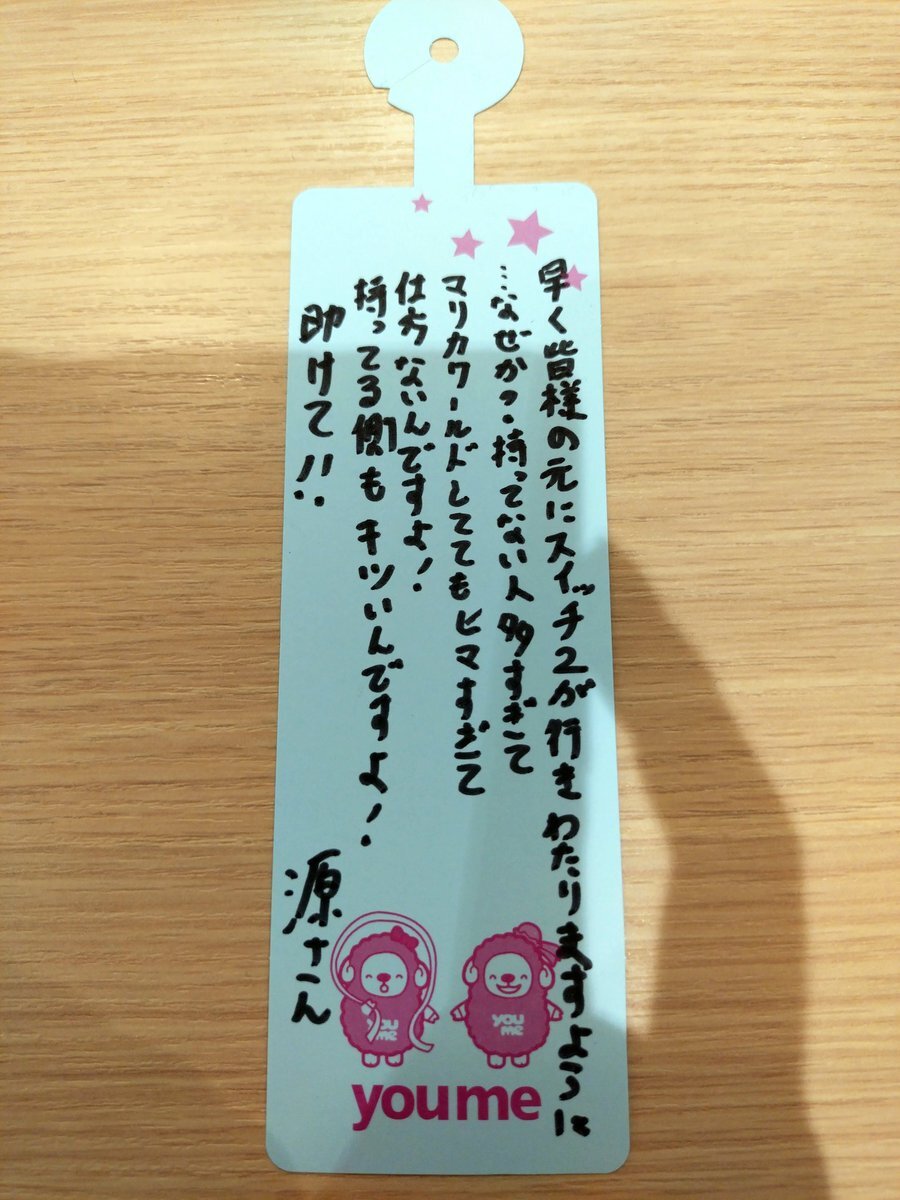 早く皆様の元にスイッチ2が行きわたりますように
…なぜかって?持ってない人多すぎて
マリカワールドしててもヒマすぎて
仕方ないんですよ!
持ってる側もキツいんですよ!
助けて!!
源さん
you me
you me
youme